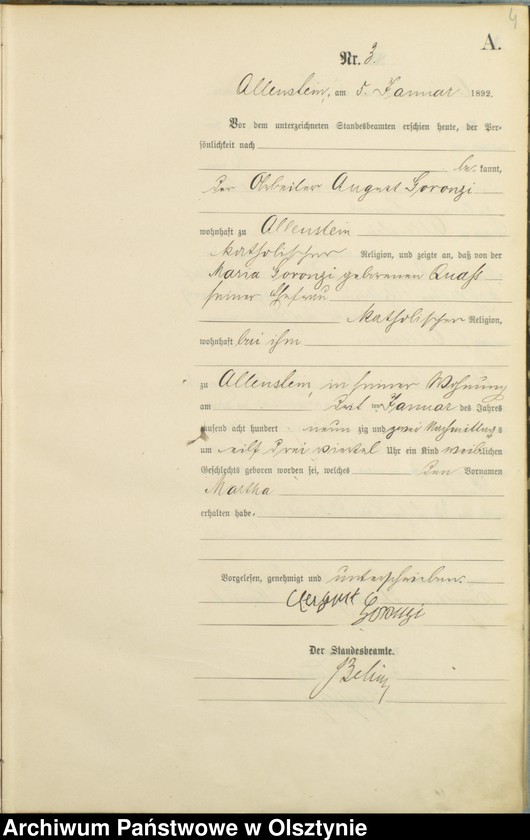 4
A.
Nr. 3.
Allenstein, am 5. Januar 1892.
Vor dem unterzeichneten Standesbeamten erschien heute, der Per-
sönlichkeit nach
be kannt,
der Arbeiter August Goronzi
wohnhaft zu Allenstein
katholischer Religion, und zeigte an, daß von der
Maria Goronzi geborenen Quaß
seiner Ehefrau
katholischer Religion,
wohnhaft bei ihm
zu Allenstein, in seiner Wohnung
am ten Januar des Jahres
tausend acht hundert neun zig und zwei Nachmittags
um eilf drei viertel Uhr ein Kind weiblichen
Geschlechts geboren worden sei, welches den Vornamen
Martha
erhalten habe.
Vorgelesen, genehmigt und unterschrieben.
August Goronzi
Der Standesbeamte.
Archiwum Państwowe w Olsztynie